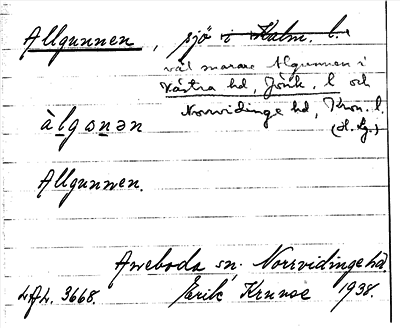 Allgunnen, sjö i Kalm. l.
väl snarare Algunnen i
Västra hd, Jönk. l och
Norrvidinge hd, Kron. l.
(H. Lg.)
àlgɷnən
Allgunnen.
Aneboda sn. Norrvidinge hd
4A4. 3668. Erik Krunse 1938.